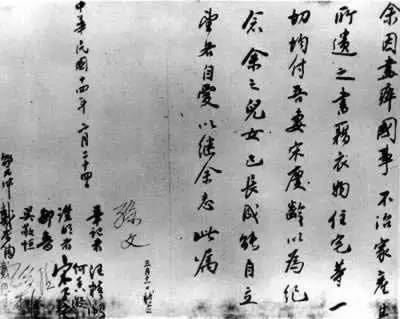 余因盡瘁國事不治家產其
所遺之書籍衣物住宅等一
切均付吾妻宋慶齡以為紀
念余之兒女已長成能自立
望各自愛以繼余志此屬
孫文
三月十一日補簽
中華民國十四年二月二十四
筆記者汪精衛
證明者宋子文
何香凝
邵元冲
戴恩賽
吳敬恆